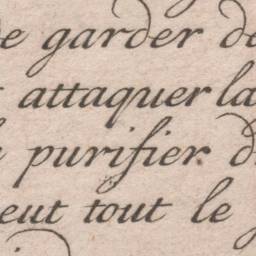 garder de
attaquer la
purifier. d
eut tout le